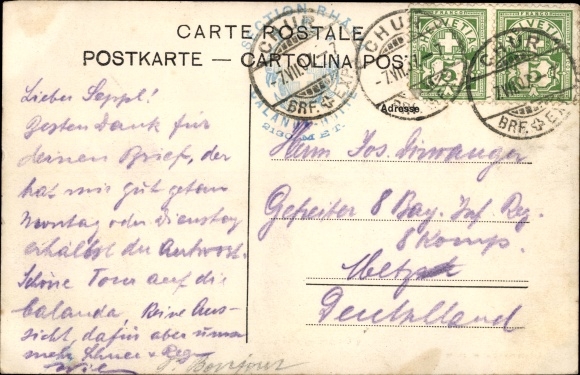 CARTE POSTALE
POSTKARTE — CARTOLINA POST
SECTION RHÄ
CALANDA HÜTTE
2130 M ET.
CHUR
7.VII.
BRF. EXP
CHUR
-7.VII.
BRF.
CHUR
7.VII.0
BRF. EX
HELVETIA
5
HELVETIA
5
Adresse.
Lieber Seppl!
Besten Dank für
Deinen Brief, der
hat mir gut getan
Montag oder Dienstag
erhältst du Antwort.
Schöne Tour auf die
Calanda. Keine Aus-
sicht, dafür aber umso
mehr Schnee & Reg
Bonjour
Herrn Jos. Dirwanger
Gefreiter 8 Bay. Inf. Reg.
8 Komp.
Metz
Deutschland